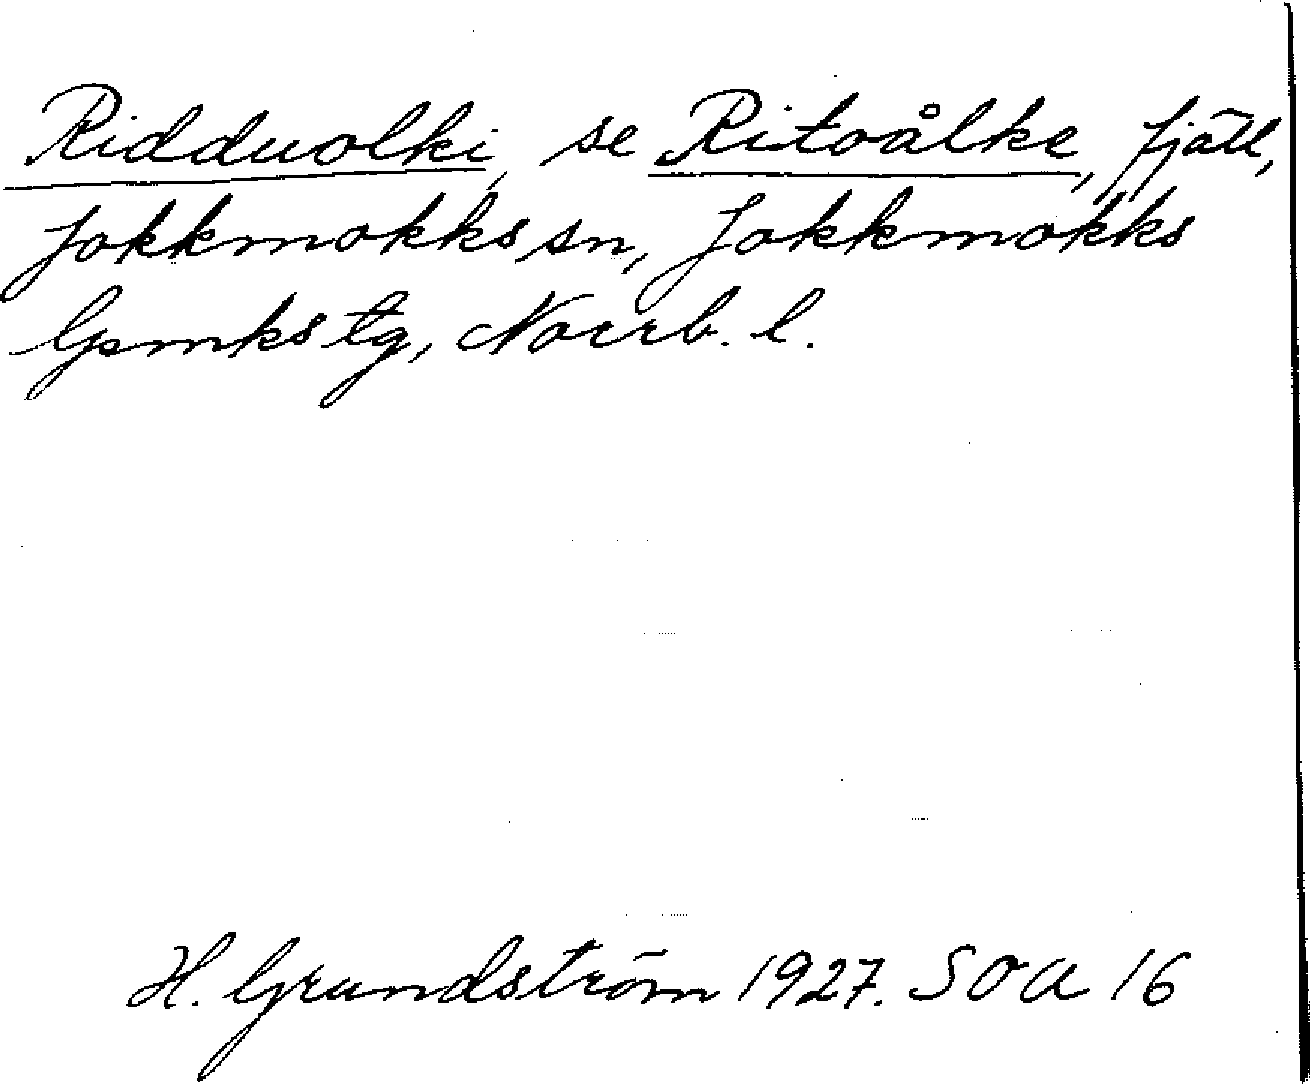 Ridduolki, se Ritoålke, fjäll,
Jokkmokks sn, Jokkmokks
lpmks tg, Norrb. l.
H. Grundström 1927. SOA 16